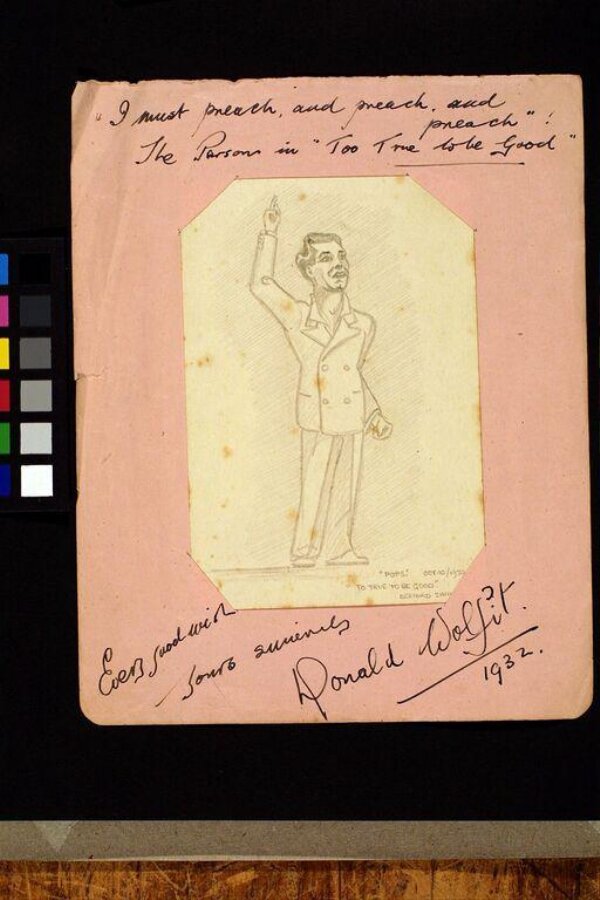 "I must preach, and preach, and
preach"!
The Parson in "Too True to be Good"
"POPS." OCT-10/1932
"TO TRUE TO BE GOOD"
BERNARD
Every good wish
yours sincerely
Donald Wolfit.
1932.